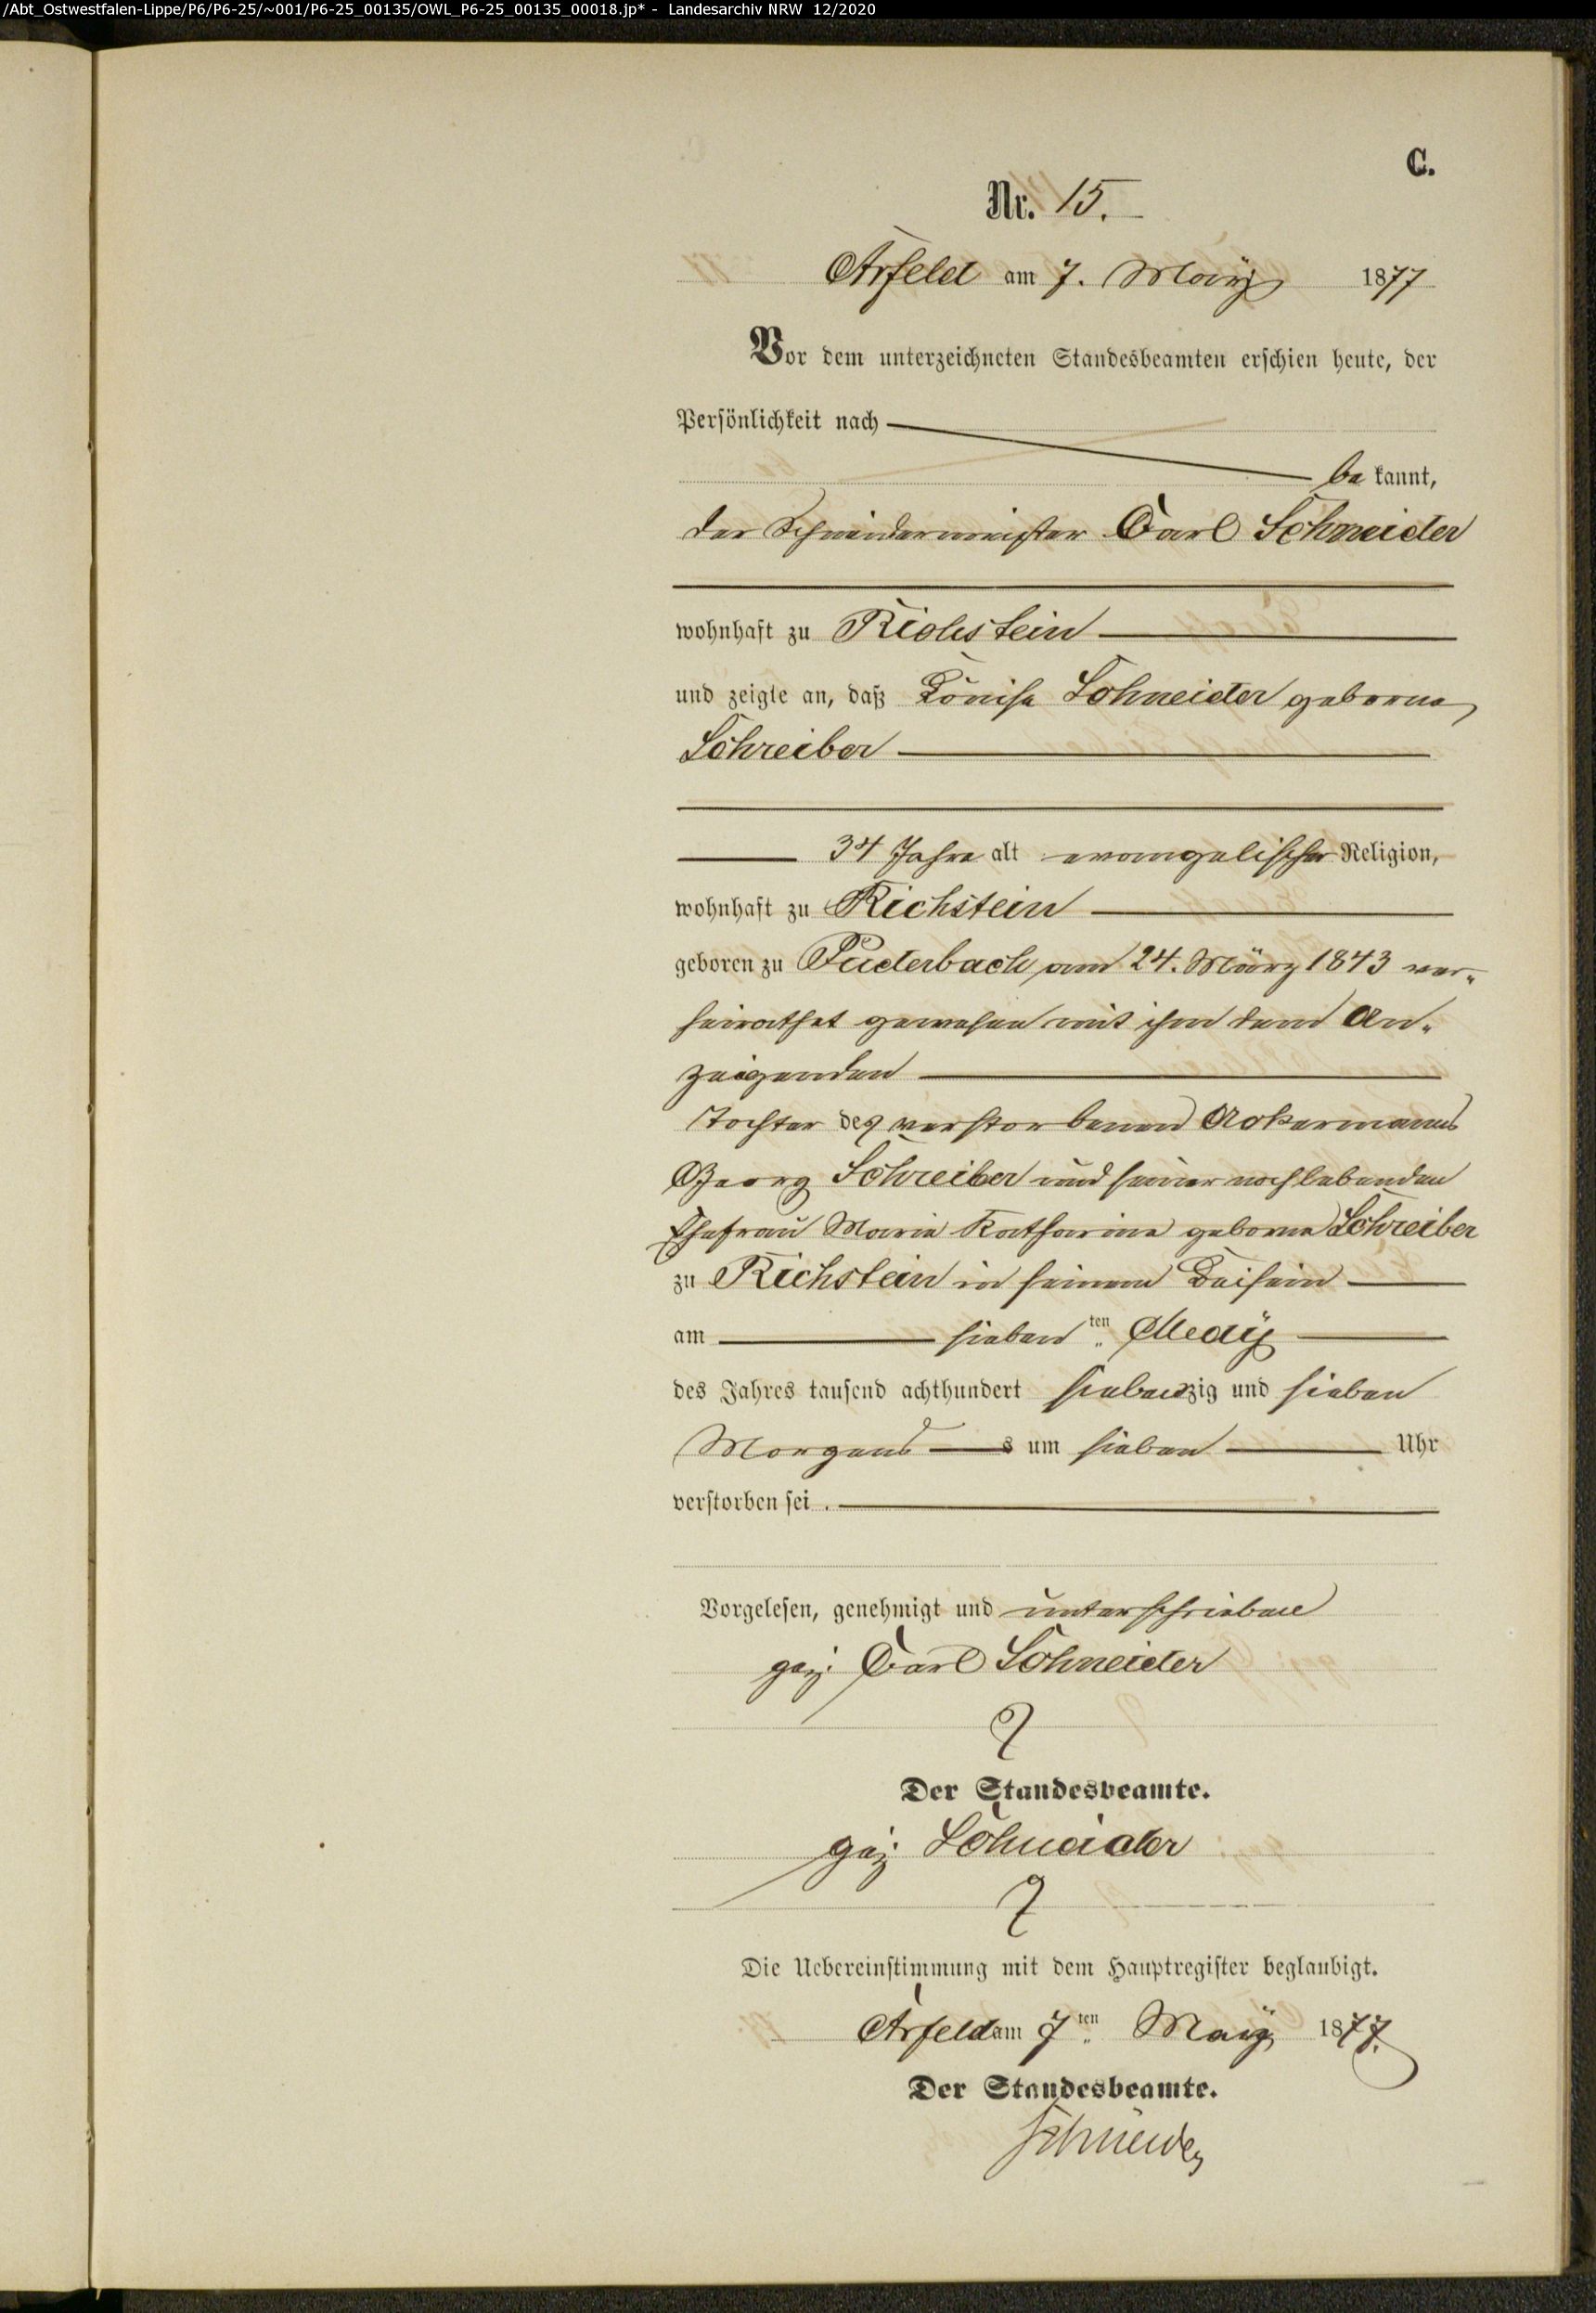 /Abt_Ostwestfalen-Lippe/P6/P6-25/~001/P6-25_00135/OWL_P6-25_00135_00018.jp* - Landesarchiv NRW 12/2020
C.
Nr. 15.
Arfeld am 7. May 1877
Vor dem unterzeichneten Standesbeamten erschien heute, der
Persönlichkeit nach
be kannt,
der Schneidermeister Carl Schneider
wohnhaft zu Richstein
und zeigte an, daß Louise Schneider geborne
Schreiber
34 Jahre alt evangelischer Religion,
wohnhaft zu Richstein
geboren zu Puderbach am 24. März 1843 ver-
heirathet gewesen mit ihm dem An-
zeigenden
Tochter des verstorbenen Ackermanns
Georg Schreiber und seiner noch lebenden
Ehefrau Marie Katharine geborne Schreiber
zu Richstein in seinem Beisein
am sieben ten May
des Jahres tausend achthundert siebenzig und sieben
Morgens s um sieben Uhr
verstorben sei .
Vorgelesen, genehmigt und unterschrieben
gez. Carl Schneider
Der Standesbeamte.
gez. Schneider
Die Uebereinstimmung mit dem Hauptregister beglaubigt.
Arfeld am 7 ten May 1877.
Der Standesbeamte.
Schneider